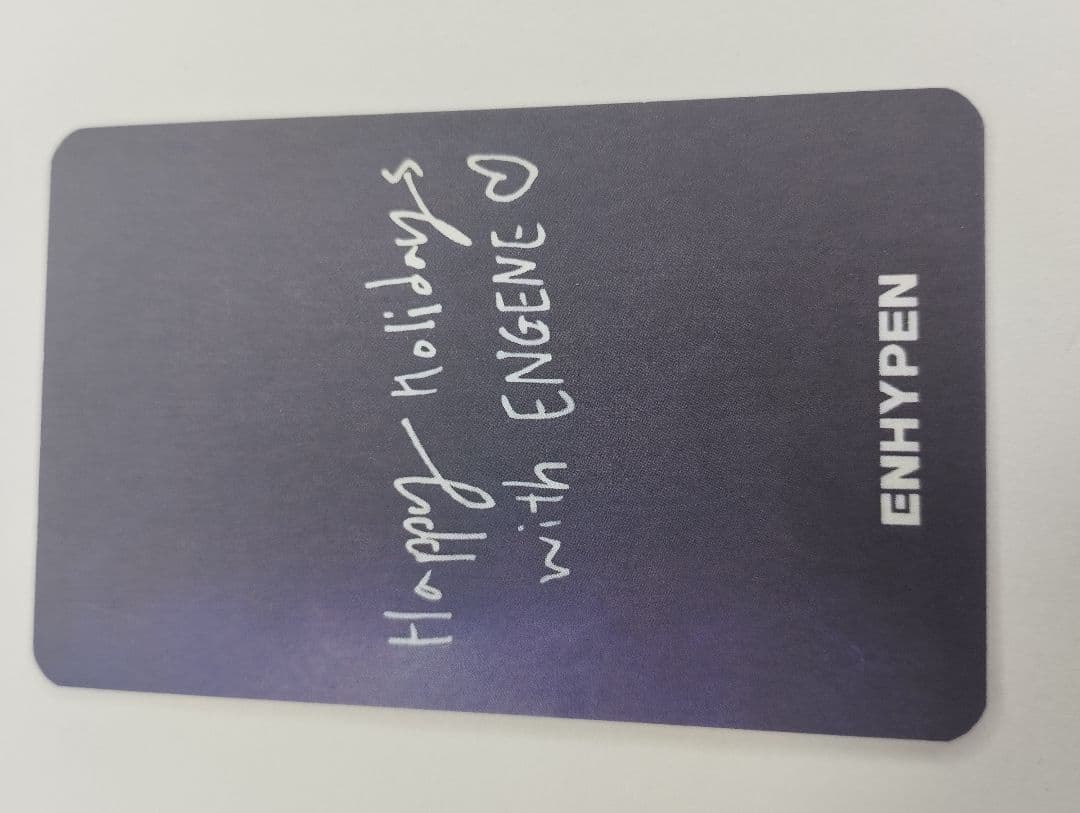 Happy Holidays
with ENGENE ♡
ENHYPEN